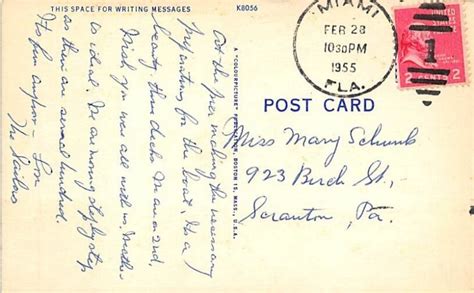 THIS SPACE FOR WRITING MESSAGES
K8056
At the pier making the necessary
preparations for the boat. It's a
beauty. three decks. I'm on 2nd.
Wish you were all with us. Weather
is ideal. I'm moving step by step
as there are several hundred.
It's fun anyhow - Love
The
A "COLOURPICTURE" PUBLICATION, BOSTON 15, MASS., U.S.A.
MIAMI
FEB 28
1030PM
1955
FLA.
1
2 CENTS 2
POST CARD
Miss Mary Schunk
923 Birch St,
Scranton, Pa.